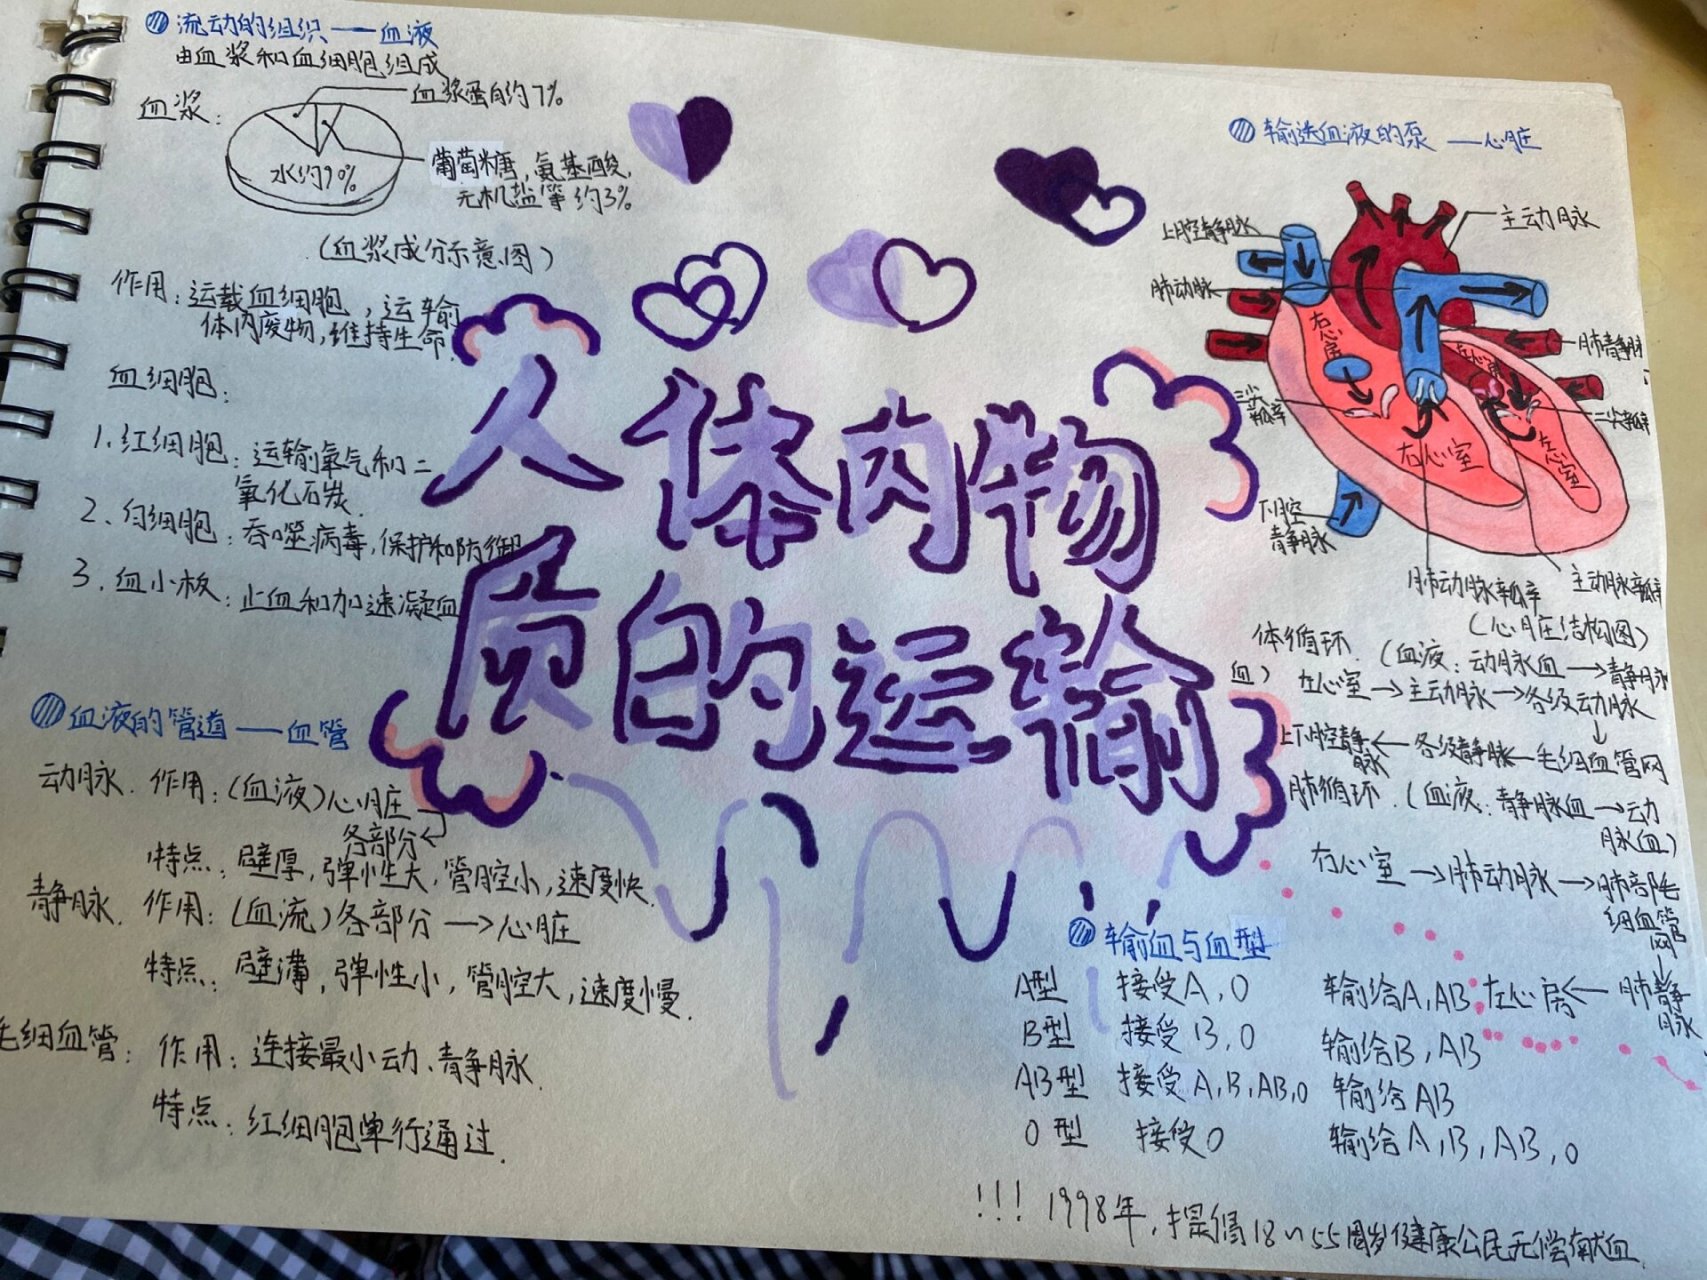 流动的组织——血液
由血浆和血细胞组成
血浆:
血浆蛋白约7%
水约90%
葡萄糖,氨基酸,
无机盐等约3%
(血浆成分示意图)
作用:运载血细胞,运输
体内废物,维持生命.
血细胞:
1.红细胞:运输氧气和二
氧化石炭.
2、白细胞:吞噬病毒,保护和防御
3.血小板:止血和加速凝血
血液的管道——血管
动脉. 作用:(血液)心脏
各部分←
特点:壁厚,弹性大,管腔小,速度快.
静脉. 作用:(血流)各部分→心脏
特点:壁薄,弹性小,管腔大,速度慢.
毛细血管: 作用:连接最小动、静脉.
特点:红细胞单行通过.
人体内物
质的运输
输送血液的泵——心脏
上腔静脉
主动脉
肺动脉
肺静脉
右心房
左心房
三尖
瓣
二尖瓣
右心室
左心室
下腔
静脉
肺动脉瓣
主动脉瓣
(心脏结构图)
体循环.(血液:动脉血→静脉
血) 左心室→主动脉→各级动脉
↓
上下腔静←各级静脉←毛细血管网
脉
肺循环.(血液:静脉血→动
脉血)
右心室→肺动脉→肺部毛
细血管
网
↓
左心房←肺静
脉
输血与血型
A型 接受A,O 输给A,AB
B型 接受B,O 输给B,AB
AB型 接受A,B,AB,O 输给AB
O型 接受O 输给A,B,AB,O
!!! 1998年,提倡18~55周岁健康公民无偿献血